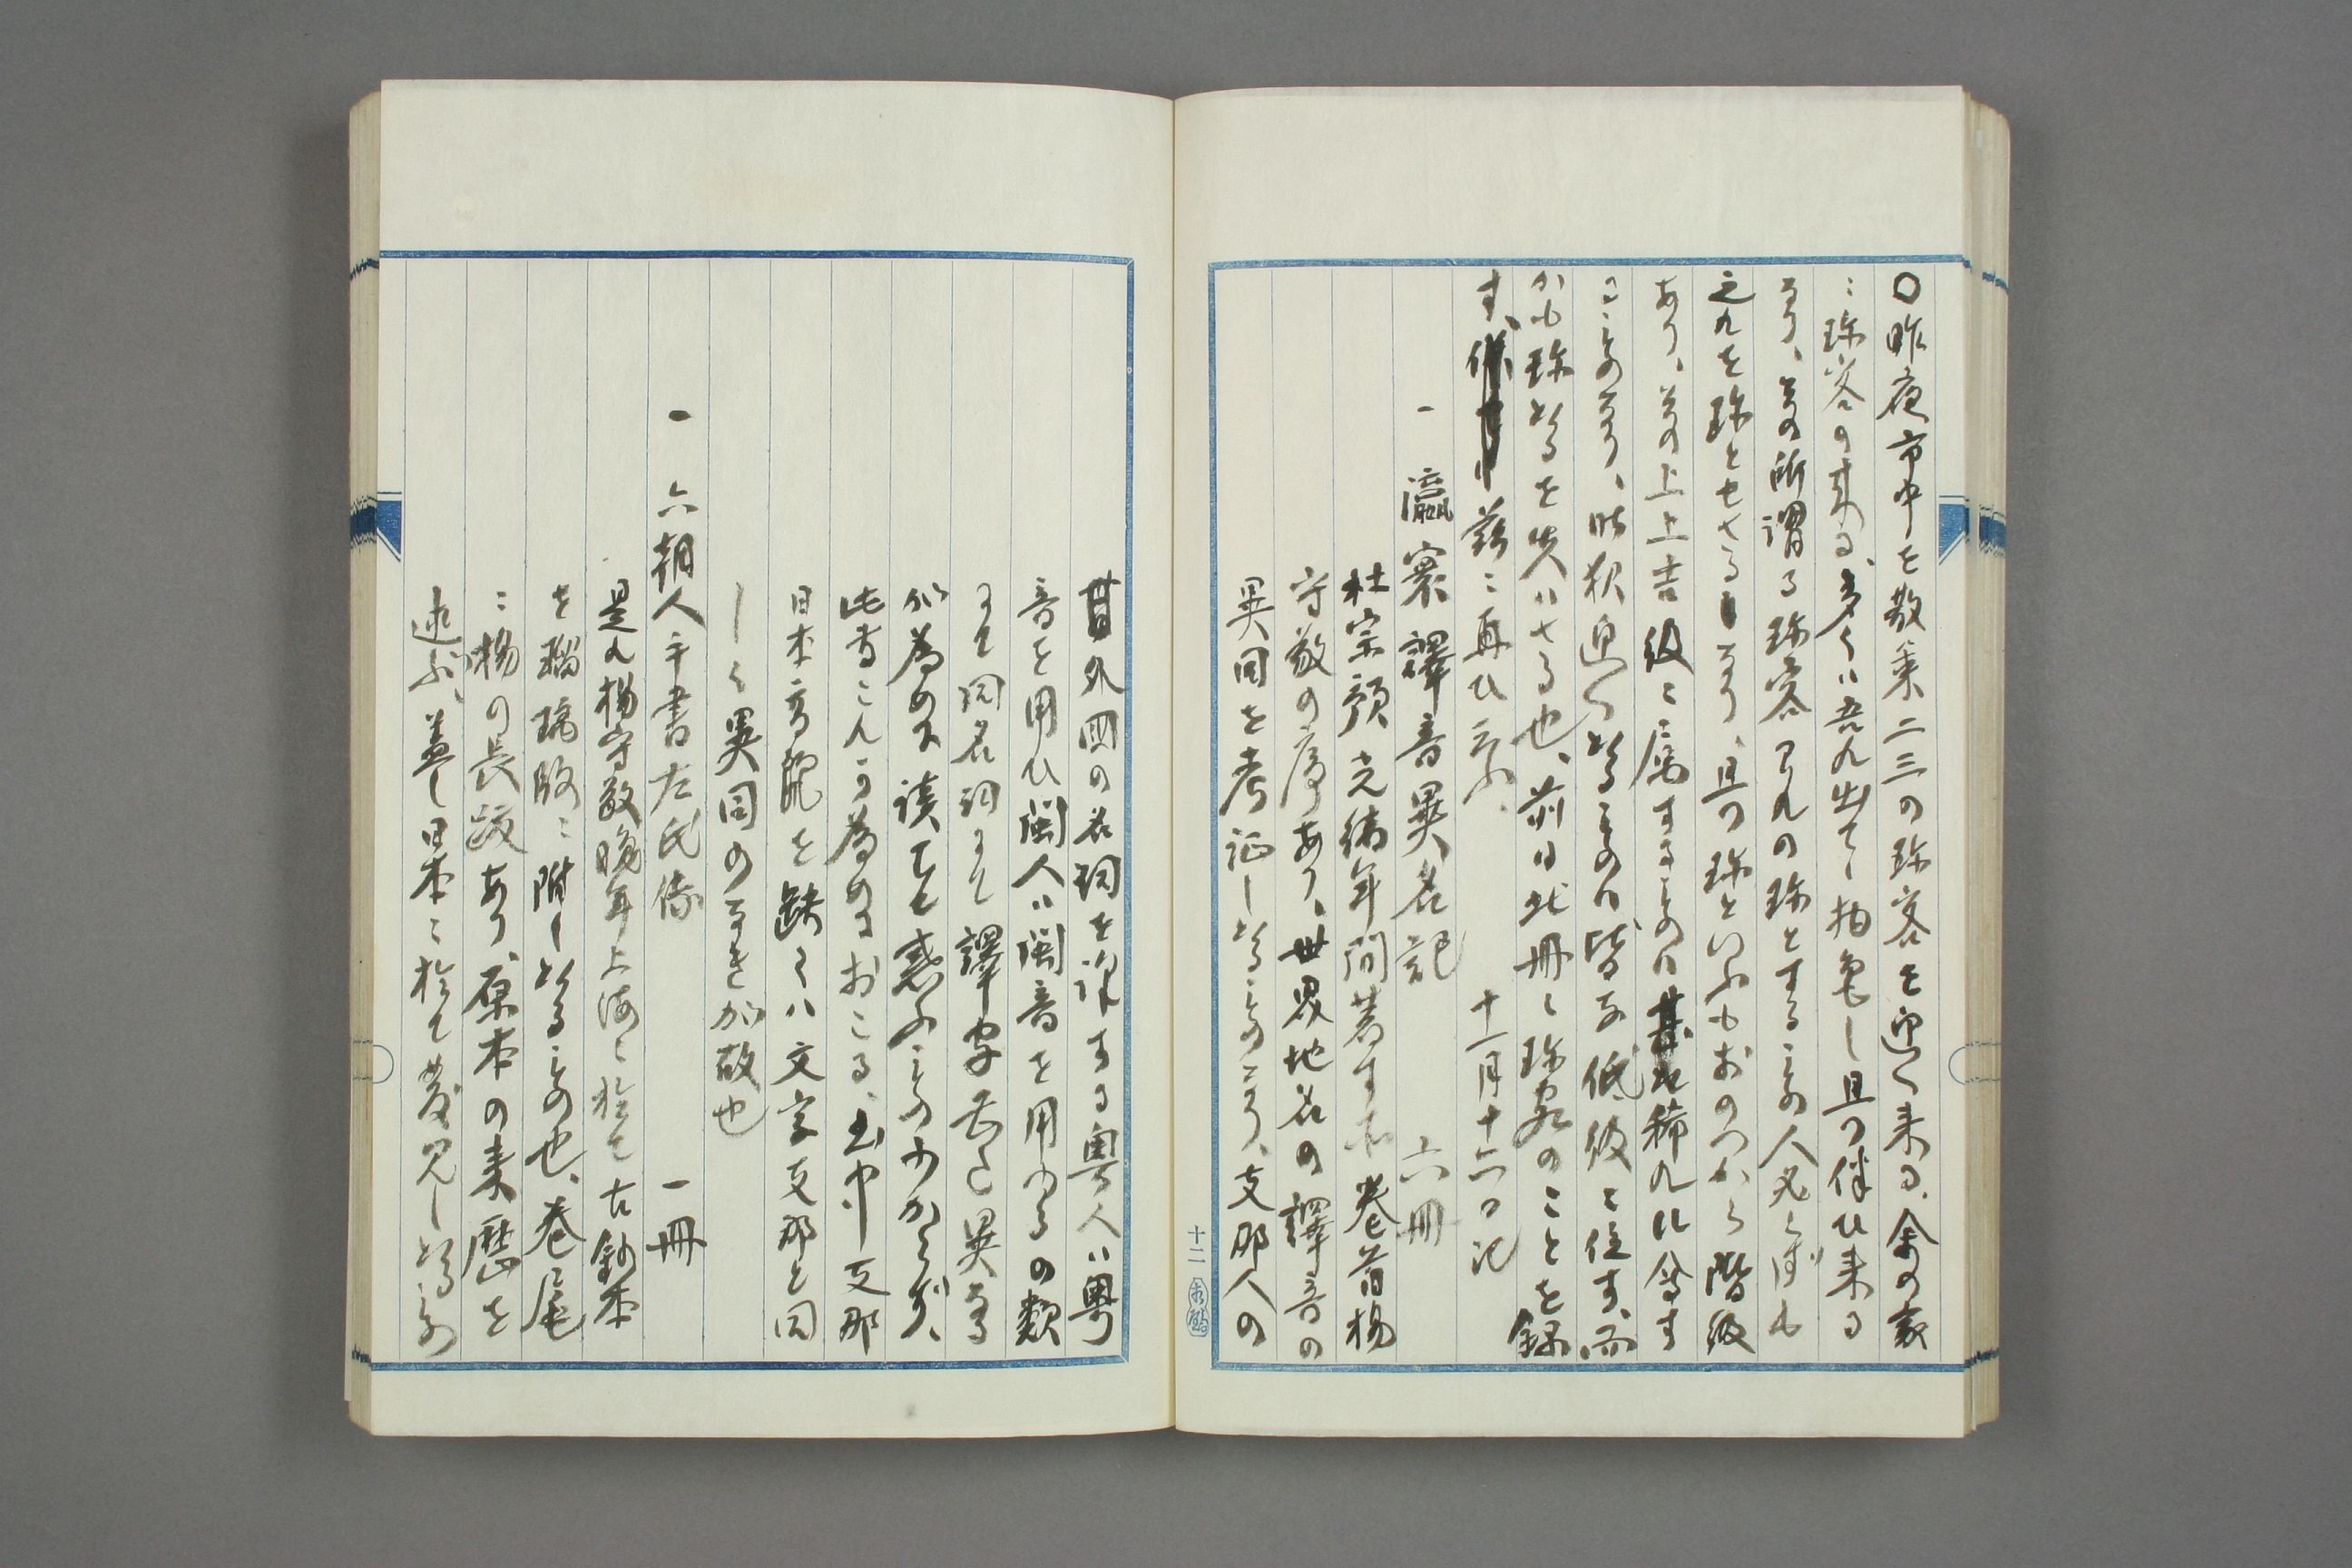 〇昨夜市中を散策二三の珍客を迎へ来る、余の家
ニ珍客の来る、多くハ吾れ出てゝ拍兎し且つ伴ひ来る
なり、其の所謂る珍客これの珍とするもの人必らずしも
之れを珍とせさるなり、且つ珍といふもおのつから階級
あり、其の上上吉級ニ属するものハ甚た稀れに
ものなり、昨秋迎へたるものハ皆な低級ニ位す、而
かも珍たるを失ハさる也、前日此冊ニ珍客のことを録
す、茲ニ再ひ云ふ、
十一月十六日記
一 瀛寰譯音異名記 六冊
杜宗預光緒年間著す 巻首楊
守敬の序あり、世界地名の譯音の
異同を考証したるものなり、支那人の
外国の名詞を譯する粤人ハ粤
音を用ひ閩人ハ閩音を用ゆるの類
にて同名詞にして譯字 異なる
か為めに讀むもの惑ふもの少からず、
此書これか為めにおこる、 支那
日本音 を缺くハ文字支那と同
しく異同のなき故也
一 六朝人手書左氏傳 一冊
是れ楊守敬晩年上海ニ於て古鈔本
を瑠璃版ニ附したるもの也、巻尾
ニ楊の長跋あり、原本の来歴を
述ぶ、蓋し日本ニ於て發見したるもの
十二